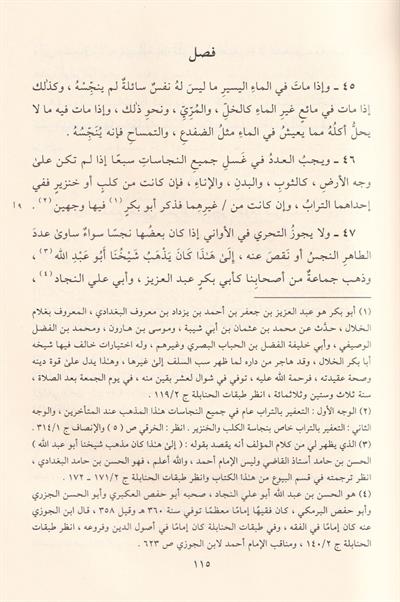 فصل
٤٥ ـ وإذا ماتَ في الماءِ اليسيرِ ما ليسَ لهُ نفسٌ سائلةٌ لم ينجِّسْهُ ، وكذلك
إذا مات في مائعٍ غيرِ الماءِ كالخلِّ ، والمُرِّيّ ، ونحوِ ذلك ، وإذا مات فيه ما لا
يحلُّ أكلُهُ مما يعيشُ في الماءِ مثلُ الضفدعِ ، والتمساحِ فإنه يُنَجِّسُهُ .
٤٦ ـ ويجبُ العددُ في غَسلِ جميعِ النجاساتِ سبعًا إذا لم تكن علىٰ
وجهِ الأرضِ ، كالثوبِ ، والبدنِ ، والإناءِ ، فإن كانت من كلبٍ أو خنزيرٍ ففي
إحداهما الترابُ ، وإن كانت من / غيرِهما فذكر أبو بكرٍ (١) فيها وجهين (٢) . ١٩
٤٧ ـ ولا يجوزُ التحري في الأواني إذا كان بعضُها نجسًا سواءٌ ساوىٰ عددَ
الطاهرِ النجسُ أو نَقصَ عنه ، إلىٰ هَذَا كَانَ يَذْهَبُ شَيْخُنَا أَبُو عَبْدِ الله (٣) ،
وذهب جماعةٌ من أصحابِنا كأبي بكرٍ عبد العزيز ، وأبي علي النجاد (٤) ،
(١) أبو بكر هو عبد العزيز بن جعفر بن أحمد بن يزداد بن معروف البغدادي ، المعروف بغلام
الخلال ، حدَّث عن محمد بن عثمان بن أبي شيبة ، وموسى بن هارون ، ومحمد بن الفضل
الوصيفي ، وأبي خليفة الفضل بن الحباب البصري وغيرهم ، وله اختيارات خالف فيها شيخه
أبا بكر الخلال ، وقد هاجر من داره لما ظهر سب السلف إلى غيرها ، وهذا يدل على قوة دينه
وصحة عقيدته ، فرحمة الله عليه ، توفي في شوال لعشر بقين منه ، في يوم الجمعة بعد الصلاة ،
سنة ثلاث وستين وثلاثمائة ، انظر طبقات الحنابلة ج ١١٩/٢ .
(٢) الوجه الأول : التعفير بالتراب عام في جميع النجاسات وهذا المذهب عند المتأخرين ، والوجه
الثاني : التعفير بالتراب خاص بنجاسة الكلب والخنزير . انظر : الخرقي ص (٥) والإنصاف ج ٣١٤/١ .
(٣) الذي يظهر لي من كلام المؤلف أنه يقصد بقوله : ( إلىٰ هذا كان مذهب شيخنا أبو عبد الله )
الحسن بن حامد أستاذ القاضي وليس الإمام أحمد ، والله أعلم ، فهو الحسن بن حامد البغدادي ،
انظر ترجمته في قسم البيوع من هذا الكتاب وانظر طبقات الحنابلة ج ١٧١/٢ - ١٧٢ .
(٤) هو الحسن بن عبد الله أبو علي النجاد ، صحبه أبو حفص العكبري وأبو الحسن الجزري
وأبو حفص البرمكي ، كان فقيهًا إمامًا معظمًا توفي سنة ٣٦٠ هـ وقيل ٣٥٨ ، قال ابن الجوزي
عنه كان إمامًا في الفقه ، وفي طبقات الحنابلة كان إمامًا في أصول الدين وفروعه ، انظر طبقات
الحنابلة ج ١٤٠/٢ ، ومناقب الإمام أحمد لابن الجوزي ص ٦٢٣ .
١١٥